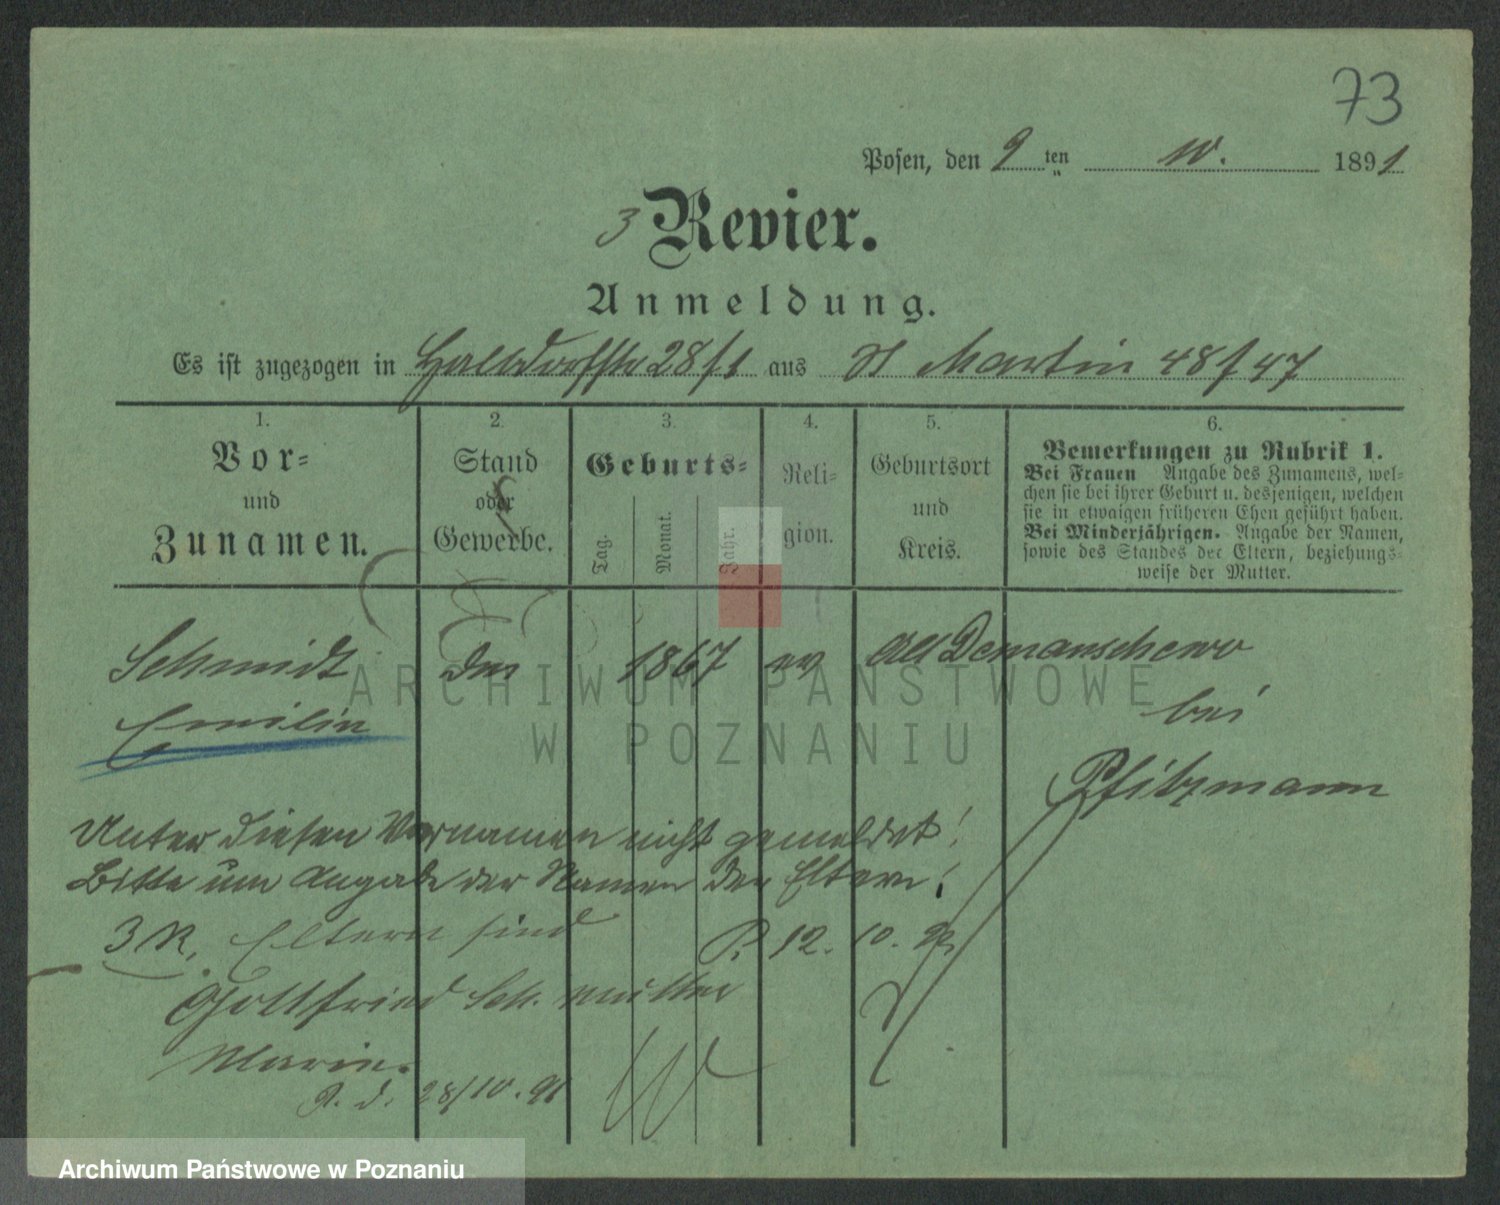 73
Posen, den 9 ten 10. 1891
3 Revier.
Anmeldung.
Es ist zugezogen in Halbdorfstr 28/1 aus St Martin 48/47
1.
Vor-
und
Zunamen.
2.
Stand
oder
Gewerbe.
3.
Geburts-
Tag.
Monat.
Jahr.
4.
Reli-
gion.
5.
Geburtsort
und
Kreis.
6.
Bemerkungen zu Rubrik 1.
Bei Frauen Angabe des Zunamens, wel-
chen sie bei ihrer Geburt u. desjenigen, welchen
sie in etwaigen früheren Ehen geführt haben.
Bei Minderjährigen. Angabe der Namen,
sowie des Standes der Eltern, beziehungs-
weise der Mutter.
Schmidt 1867 ev Alt Demanschewo
Emilie bei
Pfitzmann
Unter diesen Vornamen nicht gemeldet!
Bitte um Angabe der Namen der Eltern!
3 R. Eltern sind P. 12. 10. 91
Gottfried Sch. mutter
Marie.
P. d. 28/10. 91
ARCHIWUM PAŃSTWOWE
W POZNANIU
Archiwum Państwowe w Poznaniu